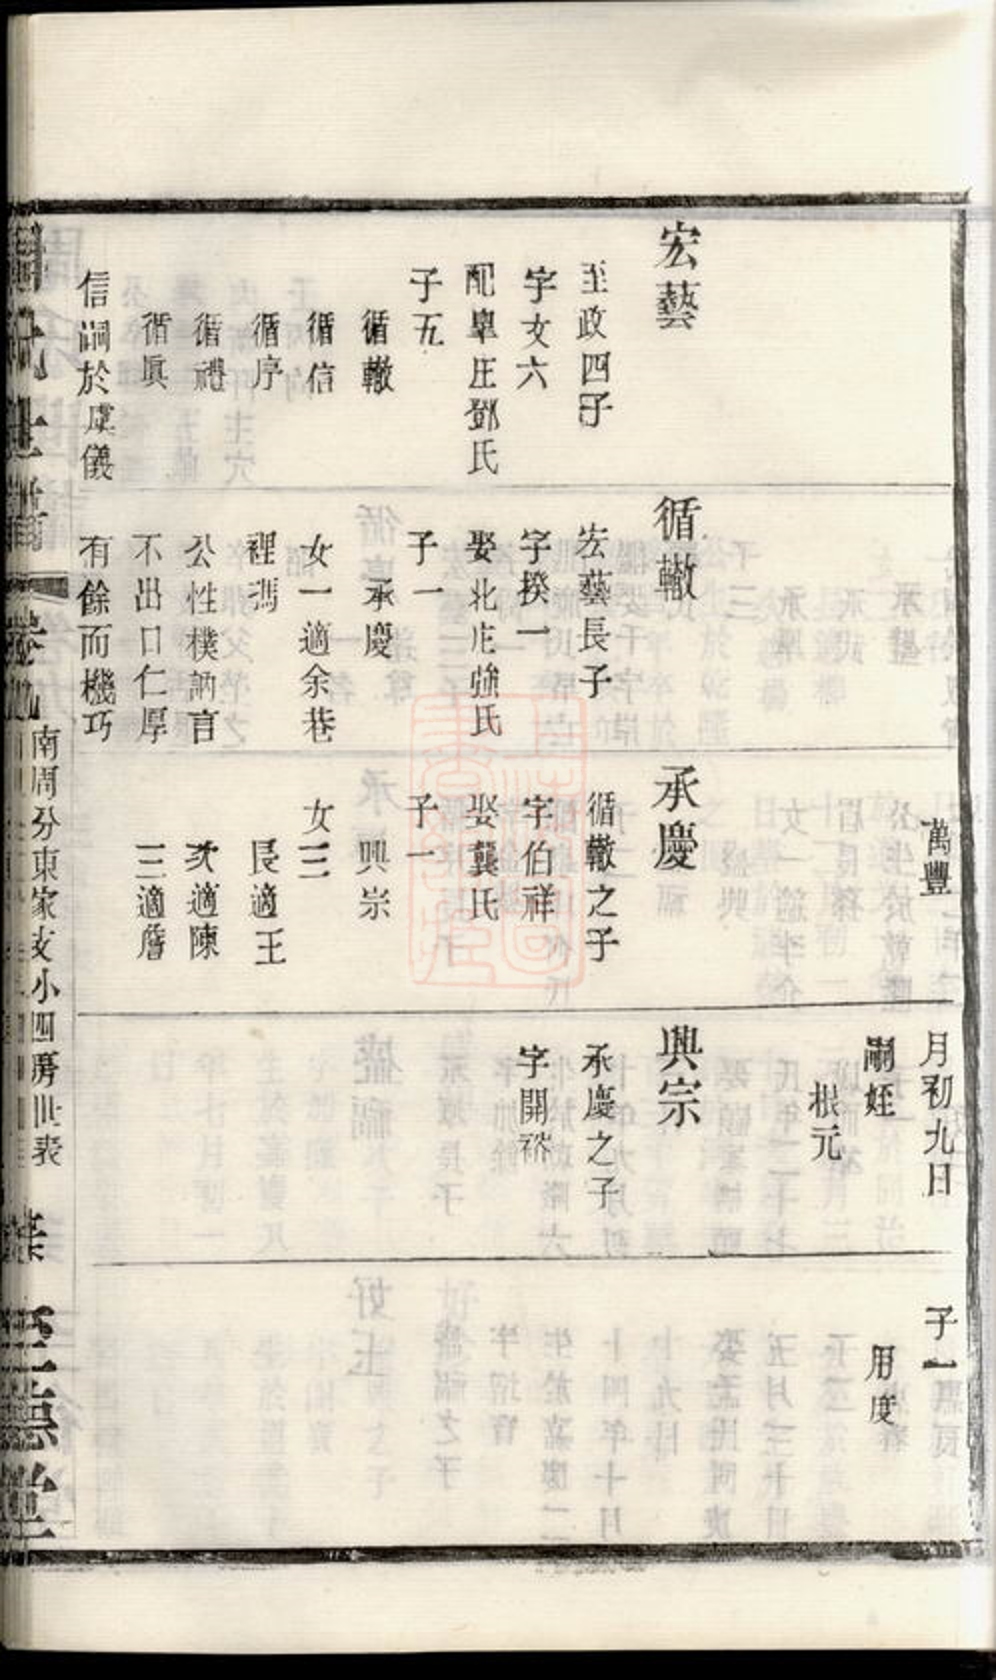 萬豐
月初九日
嗣姪
根元
子一
用度
宏藝
至政四子
字文六
配皐庄鄧氏
子五
循轍
循信
循序
循禮
循眞
信嗣於虞儀
循轍
宏藝長子
字揆一
娶北庄強氏
子一
承慶
女一適余巷
裡馮
公性樸訥言
不出口仁厚
有餘而機巧
承慶
循轍之子
字伯祥
娶龔氏
子一
興宗
女三
長適王
次適陳
三適詹
興宗
承慶之子
字開裕
周氏世譜
卷九
南周分東家支小四房世表
至德堂